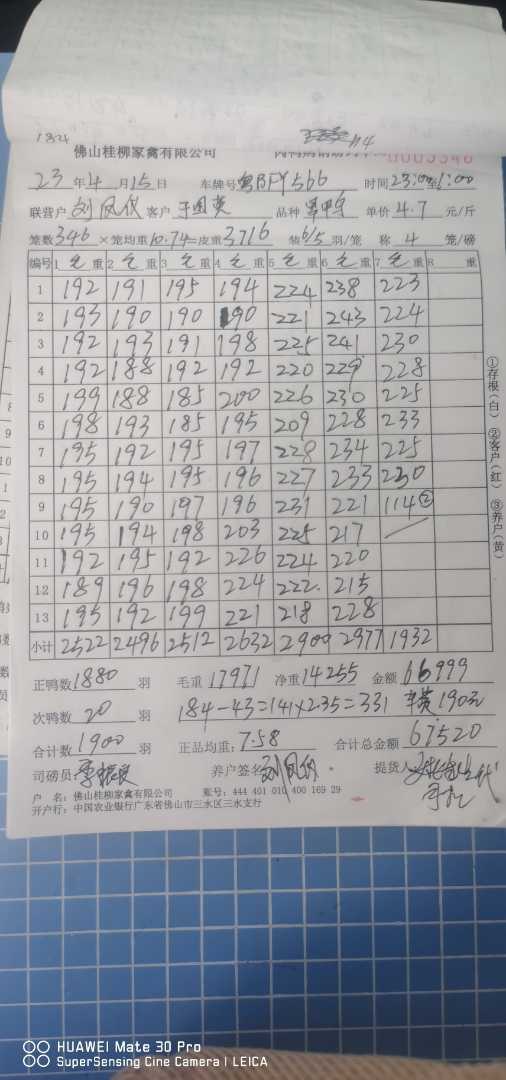 184
114
佛山桂柳家禽有限公司
0005346
23 年 4 月 15 日 车牌号 粤BFY566 时间 23:00 1:00
联营户 刘凤仪 客户 品种 单价 4.7 元/斤
笼数 346 ×笼均重 10.74 =皮重 3716 装 6/5 羽/笼 称 4 笼/磅
编号 1 毛 重 2 毛 重 3 毛 重 4 毛 重 5 毛 重 6 毛 重 7 毛 重 8 重
1 192 191 195 194 224 238 223
2 193 190 190 190 221 243 224
3 192 193 191 198 225 241 230
4 192 188 192 192 220 229 228
5 199 188 185 200 226 230 225
6 198 193 185 195 209 228 233
7 195 192 195 197 228 234 225
8 195 194 195 196 227 233 230
9 195 190 197 196 231 221 114②
10 195 194 198 203 225 217
11 192 195 192 226 224 220
12 189 196 198 224 222 215
13 195 192 199 221 218 228
小计 2522 2496 2512 2632 2900 2977 1932
正鸭数 1880 羽 毛重 17971 净重 14255 金额 66999
次鸭数 20 羽 184-43=141×2.35=331 190元
合计数 1900 羽 正品均重: 7.58 合计总金额 67520
司磅员 养户签名 刘凤仪 提货人
户 名: 佛山桂柳家禽有限公司 账号: 444 401 010 400 169 29
开户行: 中国农业银行广东省佛山市三水区三水支行
①存根(白) ②客户(红) ③养户(黄)
HUAWEI Mate 30 Pro
SuperSensing Cine Camera | LEICA